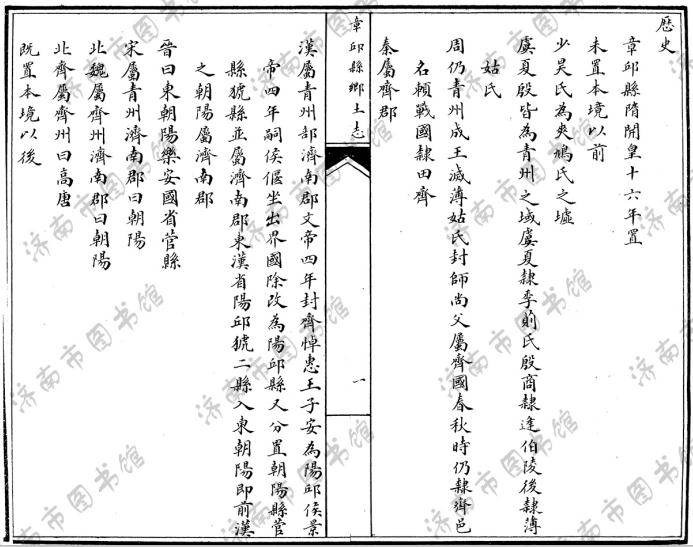 歷史
章邱縣隋開皇十六年置
未置本境以前
少昊氏為爽鳩氏之墟
虞夏殷皆為青州之域虞夏隸季萴氏殷商隸逢伯陵後隸薄
姑氏
周仍青州成王滅薄姑氏封師尚父屬齊國春秋時仍隸齊邑
名賴戰國隸田齊
秦屬齊郡
章邱縣鄉土志
一
漢屬青州部濟南郡文帝四年封齊悼惠王子安為陽邱侯景
帝四年嗣侯偃坐出界國除改為陽邱縣又分置朝陽縣菅
縣猇縣並屬濟南郡東漢省陽邱猇二縣入東朝陽即前漢
之朝陽屬濟南郡
晉曰東朝陽樂安國省菅縣
宋屬青州濟南郡曰朝陽
北魏屬齊州濟南郡曰朝陽
北齊屬齊州曰高唐
既置本境以後
济南市图书馆